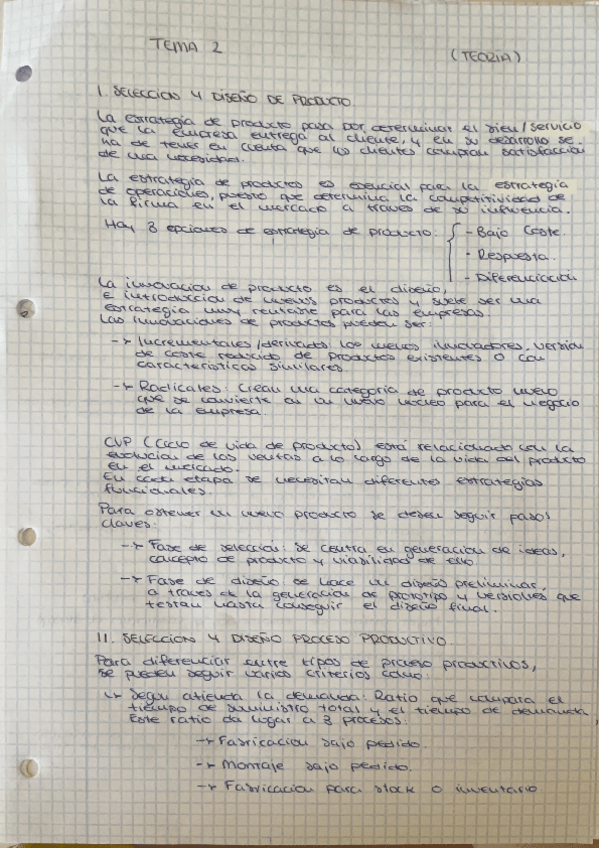 TEMA 2
(TEORÍA)
I. SELECCION Y DISEÑO DE PRODUCTO
La estrategia de producto pasa por determinar el bien/servicio
que la empresa entrega al cliente, y en su desarrollo se
ha de tener en cuenta que los clientes compran satisfacción
de una necesidad.
La estrategia de productos es esencial para la estrategia
de operaciones, puesto que determina la competitividad de
la firma en el mercado a traves de su influencia.
Hay 3 opciones de estrategia de producto:
- Bajo Coste.
- Respuesta.
- Diferenciación
La innovacion de producto es el diseño,
e introduccion de nuevos productos y suele ser una
estrategia muy rentable para las empresas.
Las innovaciones de productos pueden ser:
→ Incrementales/derivados los menos innovadores. version
de coste reducido de productos existentes o con
características similares.
→ Radicales: Crean una categoría de producto nuevo
que se convierte en un nuevo núcleo para el negocio
de la empresa.
CVP (Ciclo de vida de producto) está relacionado con la
evolucion de las ventas a lo largo de la vida del producto
en el mercado.
En cada etapa se necesitan diferentes estrategias
funcionales.
Para obtener un nuevo producto se deben seguir pasos
claves:
→ Fase de selección: se centra en generacion de ideas,
concepto de producto y viabilidad de ello.
→ Fase de diseño: se hace un diseño preliminar,
a traves de la generación de prototipo y versiones que
testan hasta conseguir el diseño final.
II. SELECCION Y DISEÑO PROCESO PRODUCTIVO.
Para diferenciar entre tipos de proceso productivos,
se pueden seguir varios criterios como:
↳ Segun atienda la demanda: Ratio que compara el
tiempo de suministro total y el tiempo de demanda,
Este ratio da lugar a 3 procesos:
→ Fabricacion bajo pedido.
→ Montaje bajo pedido.
→ Fabricacion para stock o inventario